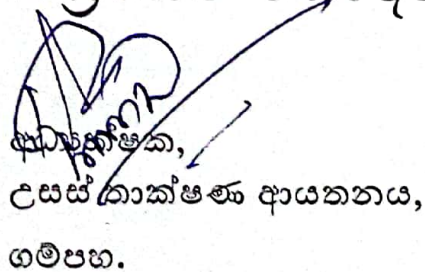 අධ්‍යක්ෂක,
උසස් තාක්ෂණ ආයතනය,
ගම්පහ.